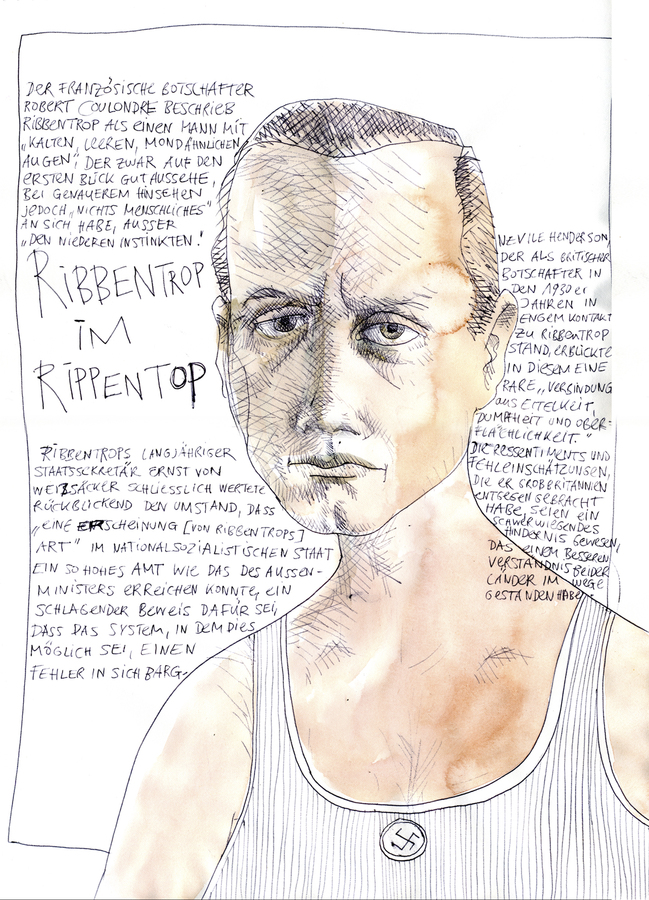 DER FRANZÖSISCHE BOTSCHAFTER
ROBERT COULONDRE BESCHRIEB
RIBBENTROP ALS EINEN MANN MIT
„KALTEN, LEEREN, MONDÄHNLICHEN
AUGEN“, DER ZWAR AUF DEN
ERSTEN BLICK GUT AUSSEHE,
BEI GENAUEREM HINSEHEN
JEDOCH „NICHTS MENSCHLICHES“
AN SICH HABE, AUSSER
„DEN NIEDEREN INSTINKTEN.“
RIBBENTROP
IM
RIPPENTOP
RIBBENTROPS LANGJÄHRIGER
STAATSSEKRETÄR ERNST VON
WEIZSÄCKER SCHLIESSLICH WERTETE
RÜCKBLICKEND DEN UMSTAND, DASS
„EINE ERSCHEINUNG [VON RIBBENTROPS]
ART“ IM NATIONALSOZIALISTISCHEN STAAT
EIN SO HOHES AMT WIE DAS DES AUSSEN-
MINISTERS ERREICHEN KONNTE, EIN
SCHLAGENDER BEWEIS DAFÜR SEI,
DASS DAS SYSTEM, IN DEM DIES
MÖGLICH SEI, EINEN
FEHLER IN SICH BARG.
NEVILE HENDERSON,
DER ALS BRITISCHER
BOTSCHAFTER IN
DEN 1930er
JAHREN IN
ENGEM KONTAKT
ZU RIBBENTROP
STAND, ERBLICKTE
IN DIESEM EINE
RARE „VERBINDUNG
AUS EITELKEIT,
DUMMHEIT UND OBER-
FLÄCHLICHKEIT.“
DIE RESSENTIMENTS UND
FEHLEINSCHÄTZUNGEN,
DIE ER GROßBRITANNIEN
ENTGEGEN GEBRACHT
HABE, SEIEN EIN
SCHWERWIEGENDES
HINDERNIS GEWESEN,
DAS EINEM BESSEREN
VERSTÄNDNIS BEIDER
LÄNDER IM WEGE
GESTANDEN HABE.